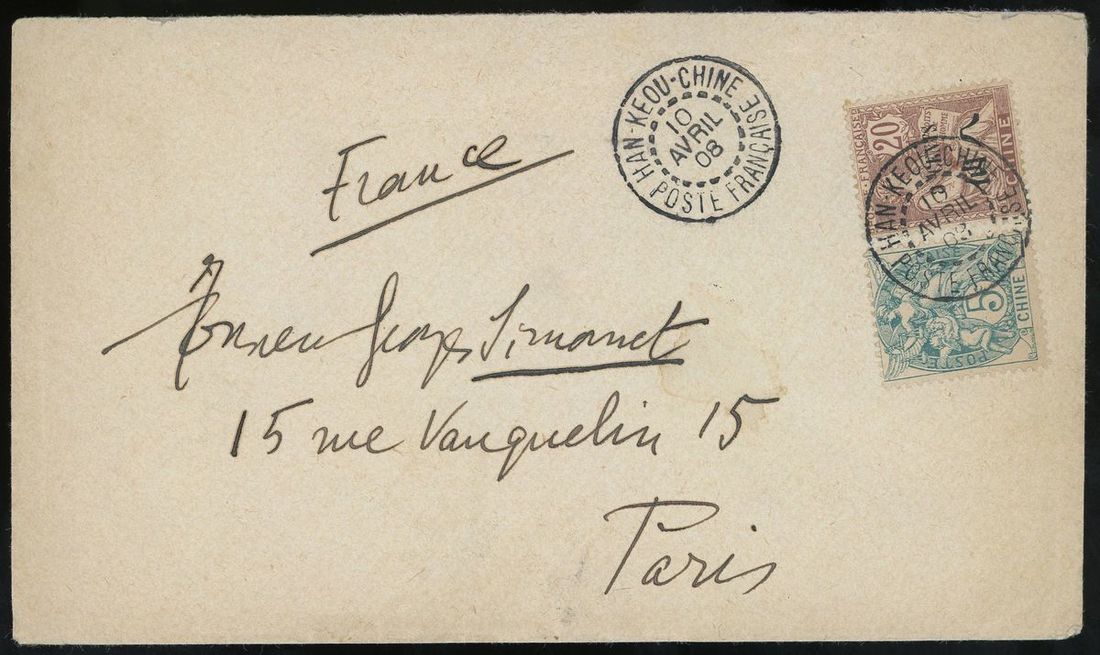 HAN-KEOU-CHINE
10
AVRIL
08
POSTE FRANÇAISE
20
CHINE
HAN-KEOU-CHINE
10
AVRIL
08
POSTE FRANÇAISE
5
CHINE
POSTE
France
Monsieur Georges Simonet
15 rue Vauquelin 15
Paris